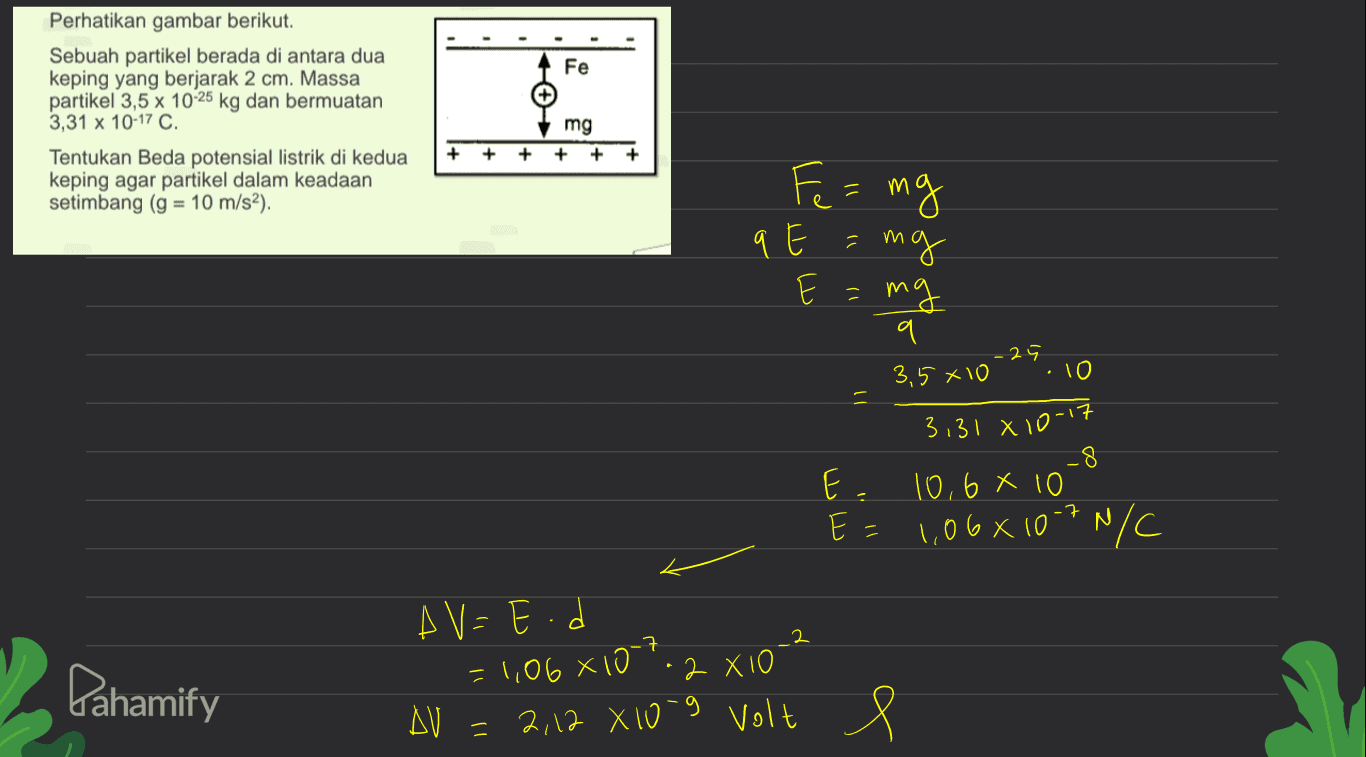 Perhatikan gambar berikut.
Sebuah partikel berada di antara dua
keping yang berjarak 2 cm. Massa
partikel 3,5 x 10-25 kg dan bermuatan
3,31 x 10-17 C.
Tentukan Beda potensial listrik di kedua
keping agar partikel dalam keadaan
setimbang (g = 10 m/s²).
- - - - - -
Fe
+
mg
+ + + + + +
Fe = mg
qE = mg
E = mg
q
= 3,5 x 10^-25 . 10
3,31 x 10^-17
E = 10,6 x 10^-8
E = 1,06 x 10^-7 N/C
ΔV = E . d
= 1,06 x 10^-7 . 2 x 10^-2
ΔV = 2,12 x 10^-9 Volt
Pahamify